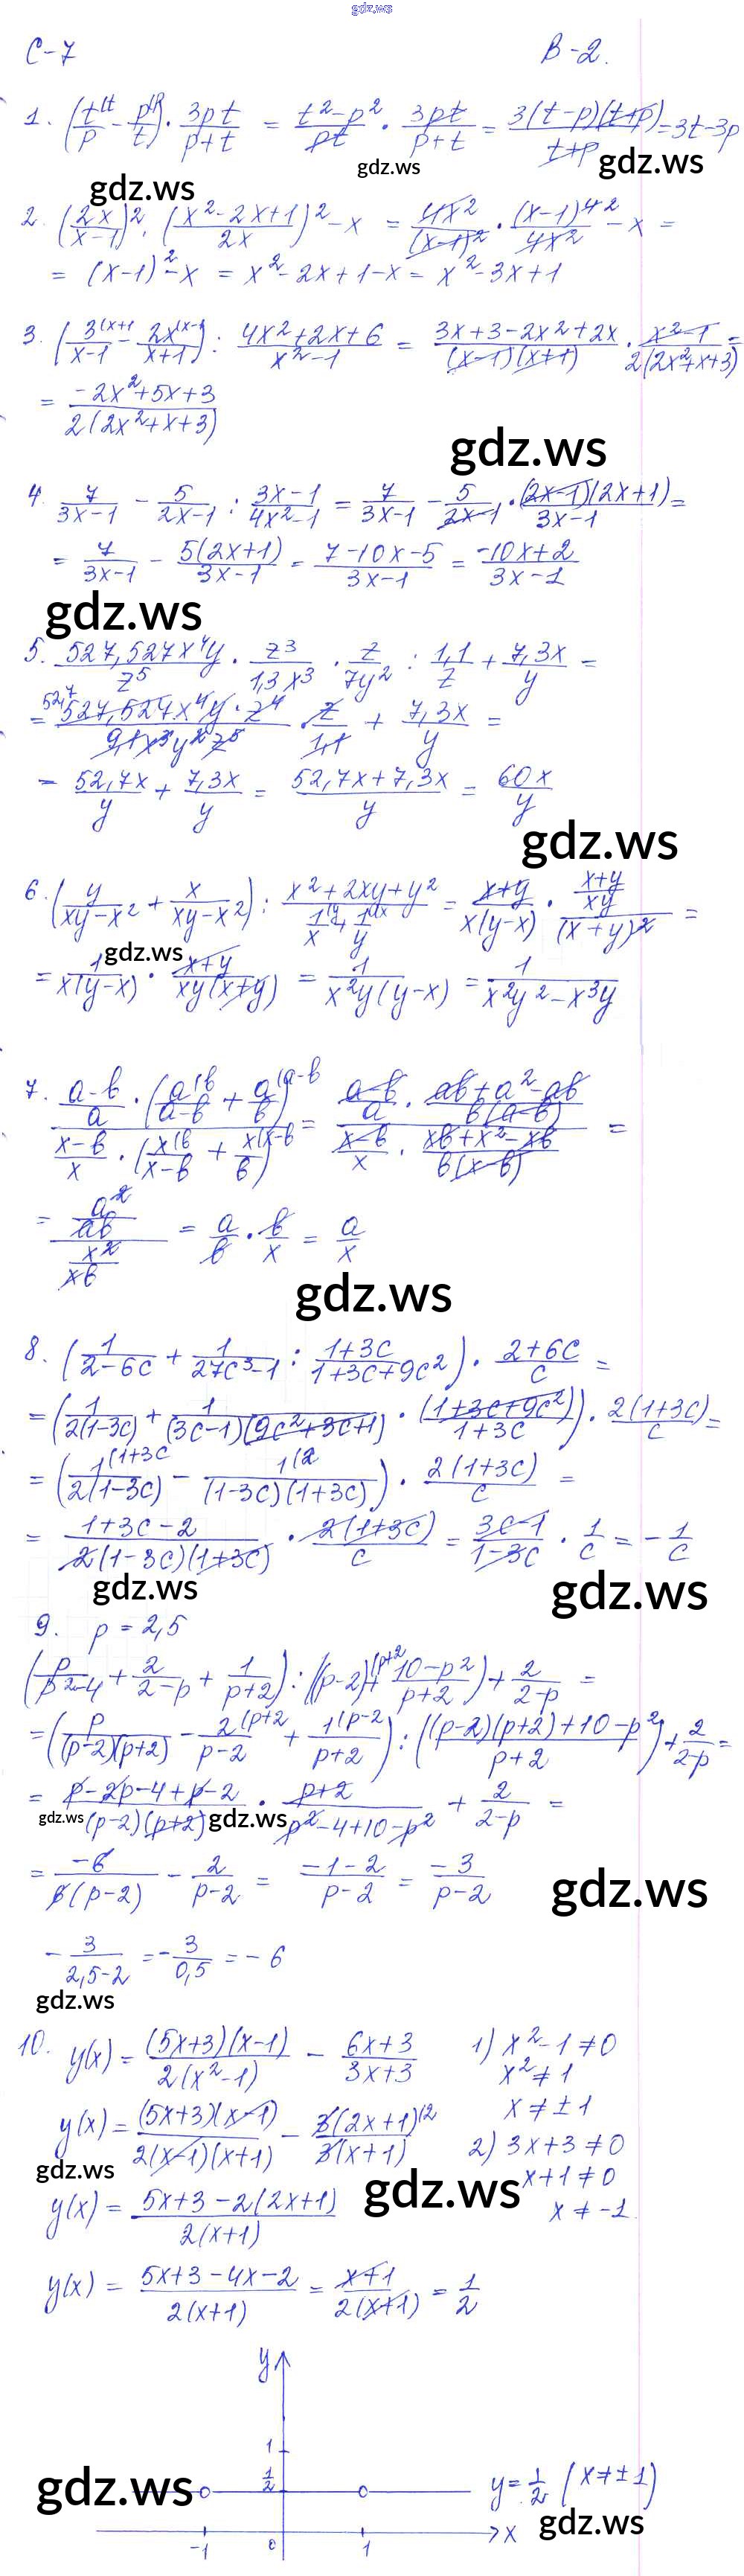 gdz.ws
С-7 В-2.
1. (t^(t/p - p^(p/t)) · 3pt/(p+t) = (t²-p²)/pt · 3pt/(p+t) = 3(t-p)(t+p)/(t+p) = 3t-3p
gdz.ws
gdz.ws
gdz.ws
2. (2x/(x-1))² · ((x²-2x+1)/2x)² - x = 4x²/(x-1)² · (x-1)^4 2/4x² - x =
= (x-1)² - x = x²-2x+1-x = x²-3x+1
3. (3(x+1/(x-1) - 2x(x-1/(x+1)) : (4x²+2x+6)/(x²-1) = (3x+3-2x²+2x)/((x-1)(x+1)) · (x²-1)/(2(2x²+x+3)) =
= (-2x²+5x+3)/(2(2x²+x+3))
gdz.ws
4. 7/(3x-1) - 5/(2x-1) : (3x-1)/(4x²-1) = 7/(3x-1) - 5/(2x-1) · (2x-1)(2x+1)/(3x-1) =
= 7/(3x-1) - 5(2x+1)/(3x-1) = (7-10x-5)/(3x-1) = (-10x+2)/(3x-1)
gdz.ws
5. 527,527x⁴y/z⁵ · z³/1,3x³ · z/7y² : 1,1/z + 7,3x/y =
= 52,7 527,527x⁴y · z⁴/9,1x³y²z⁵ · z/1,1 + 7,3x/y =
= 52,7x/y + 7,3x/y = (52,7x+7,3x)/y = 60x/y
gdz.ws
6. (y/(xy-x²) + x/(xy-x²)) : (x²+2xy+y²)/(1(y/x + 1(x/y) = (x+y)/(x(y-x)) · ((x+y)/xy)/(x+y)² =
gdz.ws
= 1/(x(y-x)) · (x+y)/(xy(x+y)) = 1/(x²y(y-x)) = 1/(x²y²-x³y)
7. ((a-b)/a · (a(b/(a-b) + a(a-b/b))/((x-b)/x · (x(b/(x-b) + x(x-b/b)) = ((a-b)/a · (ab+a²-ab)/(b(a-b)))/((x-b)/x · (xb+x²-xb)/(b(x-b))) =
= (a²/ab)/(x²/xb) = a/b · b/x = a/x
gdz.ws
8. (1/(2-6c) + 1/(27c³-1) : (1+3c)/(1+3c+9c²)) · (2+6c)/c =
= (1/(2(1-3c)) + 1/((3c-1)(9c²+3c+1)) · (1+3c+9c²)/(1+3c)) · 2(1+3c)/c =
= (1(1+3c/(2(1-3c)) - 1(2/((1-3c)(1+3c))) · 2(1+3c)/c =
= (1+3c-2)/(2(1-3c)(1+3c)) · 2(1+3c)/c = (3c-1)/(1-3c) · 1/c = -1/c
gdz.ws
gdz.ws
9. p = 2,5
(p/(p²-4) + 2/(2-p) + 1/(p+2)) : ((p-2)(p+2 + (10-p²)/(p+2)) + 2/(2-p) =
= (p/((p-2)(p+2)) - 2(p+2/(p-2) + 1(p-2/(p+2)) : (((p-2)(p+2)+10-p²)/(p+2)) + 2/(2-p) =
= (p-2p-4+p-2)/((p-2)(p+2)) · (p+2)/(p²-4+10-p²) + 2/(2-p) =
gdz.ws
gdz.ws
= -6/(6(p-2)) - 2/(p-2) = (-1-2)/(p-2) = -3/(p-2)
gdz.ws
-3/(2,5-2) = -3/0,5 = -6
gdz.ws
10. y(x) = (5x+3)(x-1)/(2(x²-1)) - (6x+3)/(3x+3) 1) x²-1≠0
x²≠1
x≠±1
y(x) = (5x+3)(x-1)/(2(x-1)(x+1)) - 3(2x+1)(2/(3(x+1)) 2) 3x+3≠0
gdz.ws
gdz.ws
x+1≠0
y(x) = (5x+3-2(2x+1))/(2(x+1)) x≠-1
y(x) = (5x+3-4x-2)/(2(x+1)) = (x+1)/(2(x+1)) = 1/2
y
1
1/2
gdz.ws
y=1/2 (x≠±1)
gdz.ws
-1 0 1 x